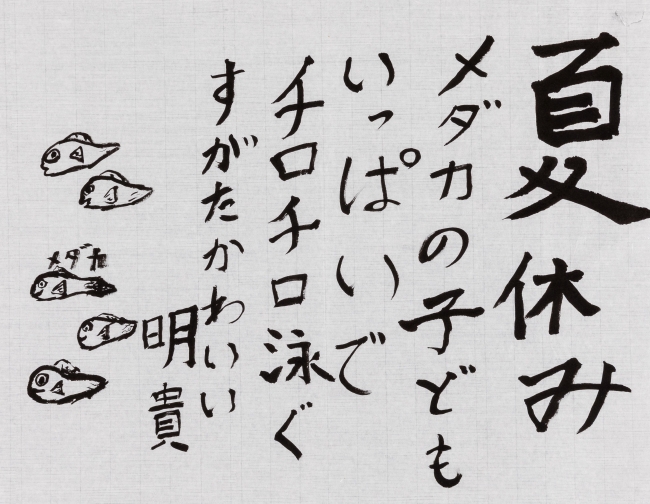 夏休み
メダカの子ども
いっぱいで
チロチロ泳ぐ
すがたかわいい
明貴
メダカ